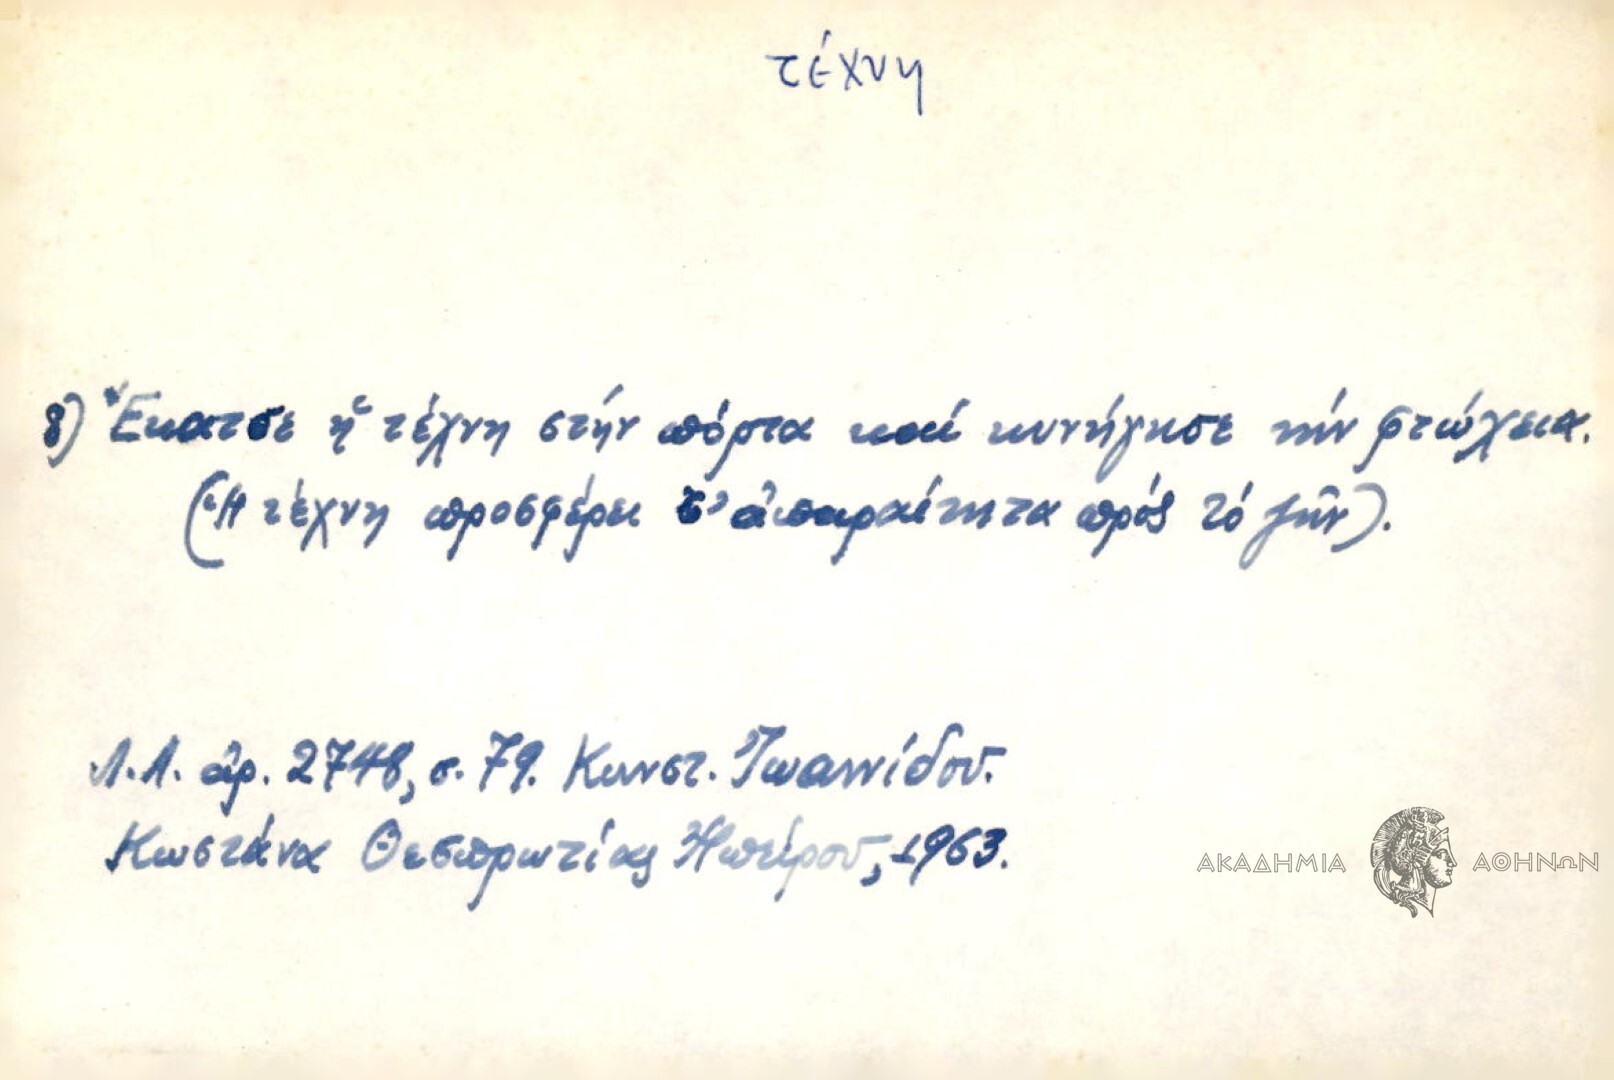 τέχνη
8) Ἔκατσε ἡ τέχνη στήν πόρτα καί κυνήγησε τήν φτώχεια.
(Ἡ τέχνη προσφέρει τ' ἀπαραίτητα πρός τό ζῆν).
Λ.Α. ἀρ. 2748, σ. 79. Κωνστ. Ἰωαννίδου.
Κωστάνα Θεσπρωτίας Ἠπείρου, 1963.
ΑΚΑΔΗΜΙΑ ΑΘΗΝΩΝ